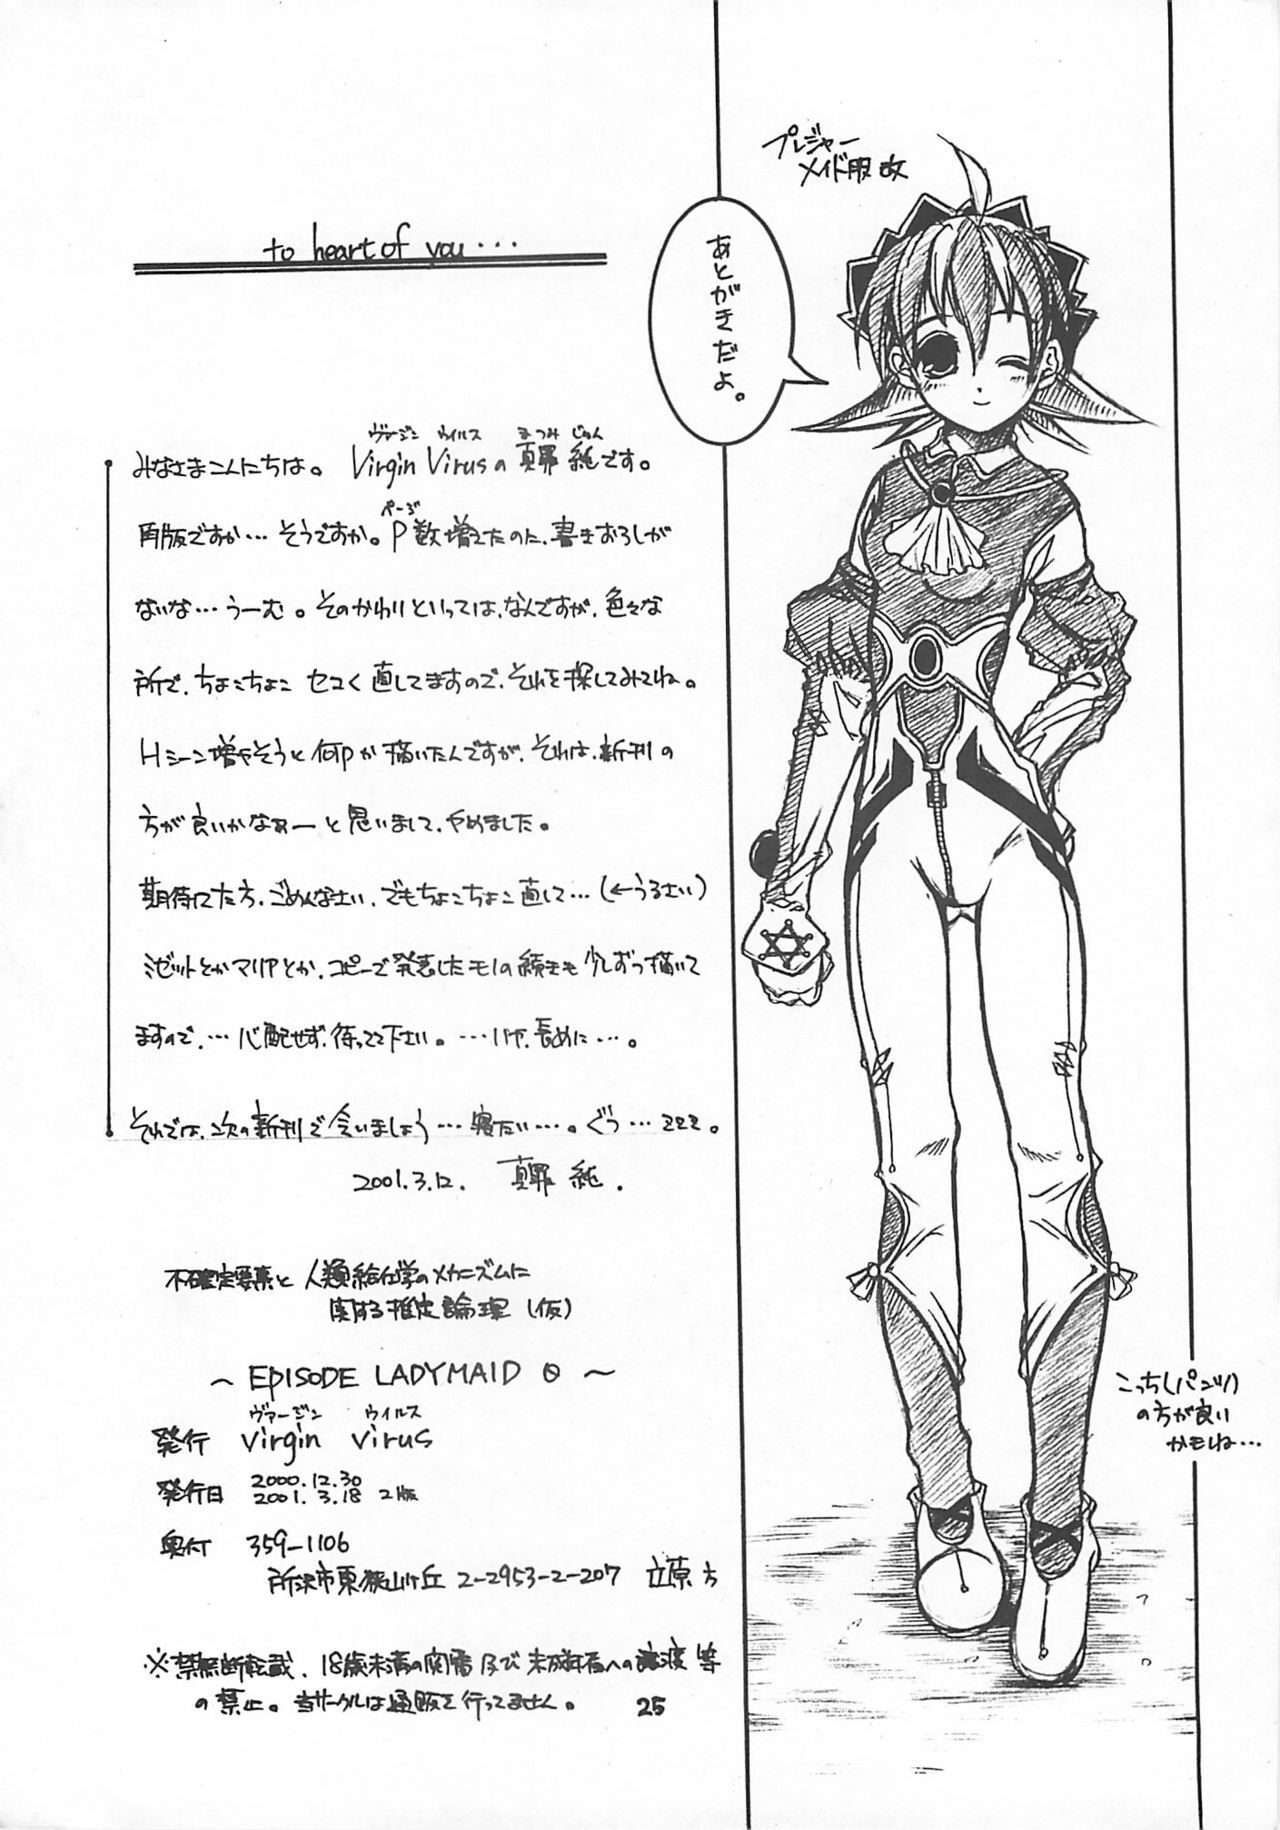 to heart of you...
プレジャー
メイド服 改
あとがきだよ。
ヴァージン ウイルス まつみ じゅん
みなさまこんにちは。 Virgin Virusの 真罪 純です。
ページ
再版ですか…そうですか。P数増えたのに、書きおろしが
ないな…うーむ。そのかわりといっては、なんですが、色々な
所で、ちょこちょこ セコく直してますので、それを探してみてね。
Hシーン増やそうと何Pか描いたんですが、それは、新刊の
方が良いかなぁーと思いまして、やめました。
期待してた方、ごめんなさい、でもちょこちょこ直して…(←うるさい)
ミゼットとかマリアとか、コピーで発表したモノの続きも少しずつ描いて
ますので、…心配せず、待ってて下さい。…いや、長めに…。
それでは、次の新刊で会いましょう…寝たい…。ぐぅ…zzz。
2001.3.12. 真罪 純.
不確定要素と人類給仕学のメカニズムに
関する推定論理(仮)
～ EPISODE LADYMAID 0 ～
ヴァージン ウイルス
発行 virgin virus
発行日 2000.12.30
2001.3.18 2版
奥付 359-1106
所沢市東狭山ヶ丘2-2953-2-207 立原方
※禁無断転載、18歳未満の閲覧及び未成年者への譲渡等
の禁止。当サークルは通販を行ってません。
25
こっち(パンツ)
の方が良い
かもね…